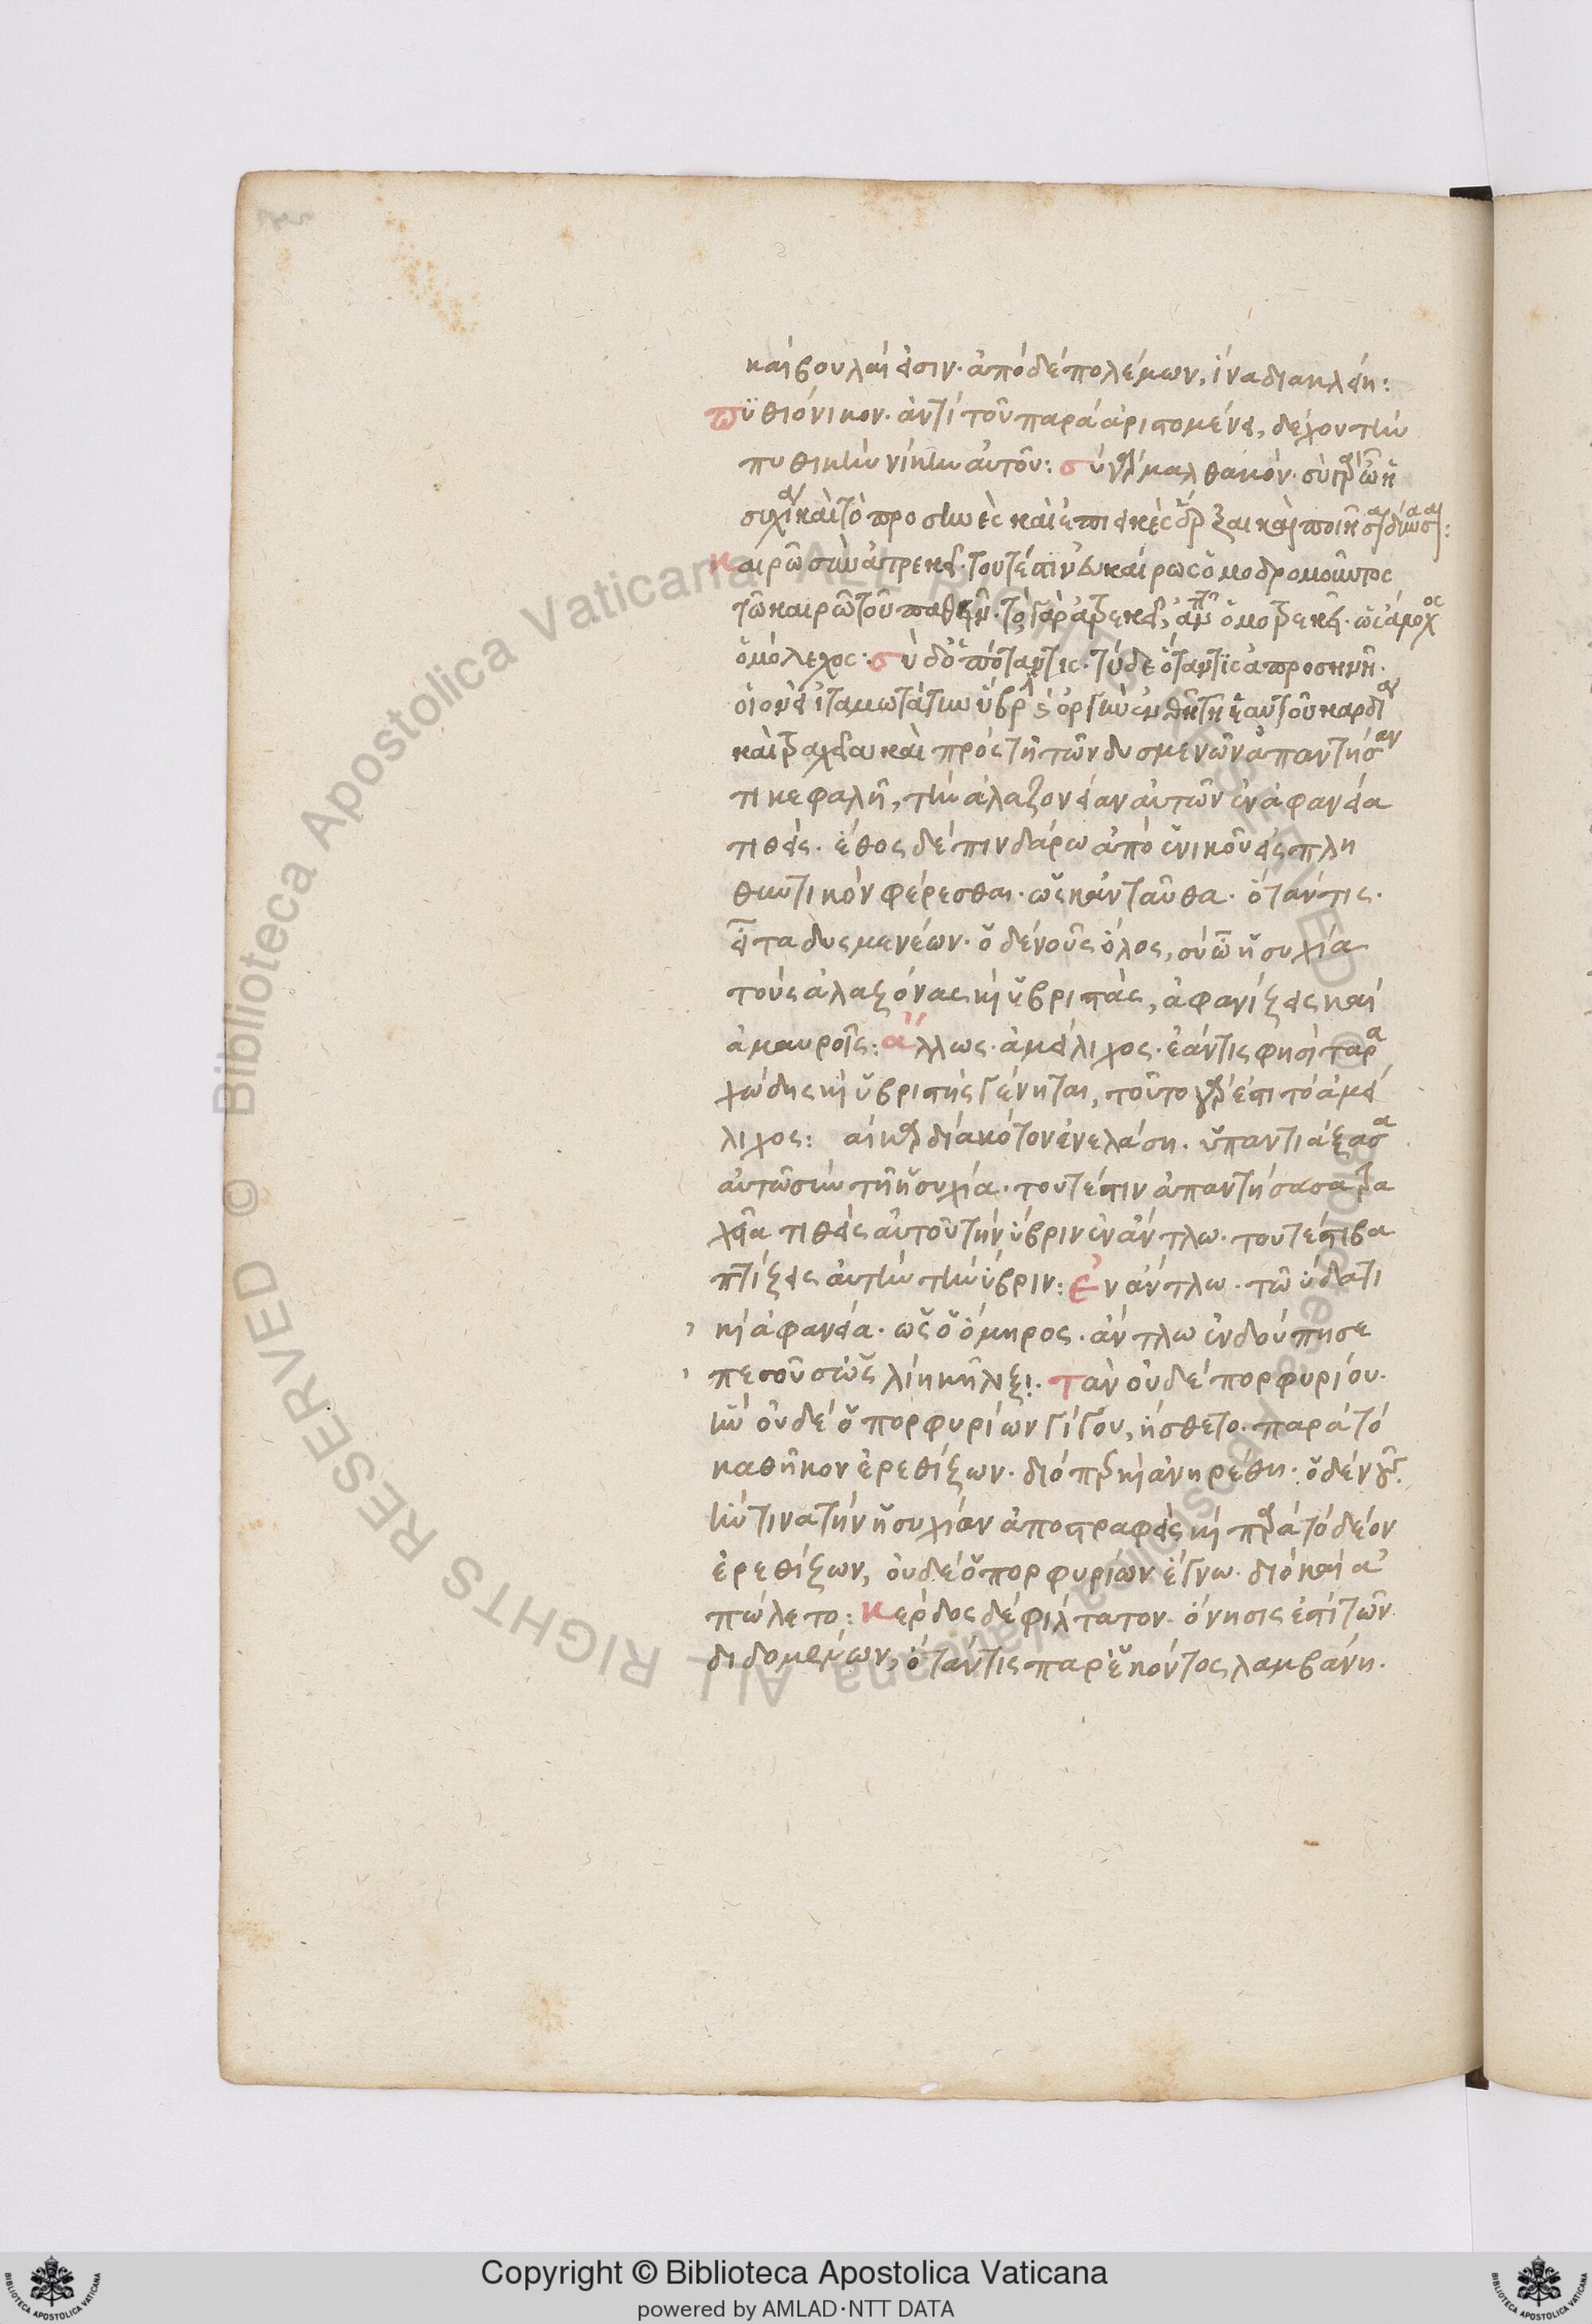 καὶ βουλαί εἰσιν· ἀπὸ δὲ πολέμων, ἵνα διακλείῃ:
πυθιόνικον· ἀντὶ τοῦ παρὰ ἀριστομένει, δέχου τὴν
πυθικὴν νίκην αὐτοῦ: σὺ γὰρ μαλθακόν· σὺ γὰρ ὦ ἡ
συχία καὶ τὸ προσηνὲς καὶ ἐπιεικὲς ἔρξαι καὶ ποιῆσαι
καιρῷ σὺν ἀτρεκεῖ· τουτέστιν εὐκαίρως ὁμοδρομοῦντος
τῷ καιρῷ τοῦ παθεῖν· τὸ γὰρ ἀτρεκεῖ, ἀντὶ τοῦ ὁμοτρεκεῖ· ὡς
ὁμόλεχος: σὺ δ' ὁπόταν τις· σὺ δὲ ὅταν τις ἀπροσηνῆ·
οἱονεὶ ἰταμωτάτην ὕβριν ὀργὴν ἐνθῇ τῇ ἑαυτοῦ καρδίᾳ
καὶ τραχεῖα καὶ πρὸς τῇ τῶν δυσμενῶν ἀπαντήσαν
τι κεφαλῇ, τὴν ἀλαζονείαν αὐτῶν ἐν ἀφανείᾳ
τιθεῖς. ἔθος δὲ πινδάρῳ ἀπὸ ἑνικοῦ εἰς πλη
θυντικὸν φέρεσθαι· ὡς κἀνταῦθα· ὅταν τις·
εἶτα δυσμενέων· ὁ δὲ νοῦς ὅλος, σὺ ὦ ἡσυχία
τοὺς ἀλαζόνας καὶ ὑβριστὰς, ἀφανίζεις καὶ
ἀμαυροῖς: ἄλλως· ἀμείλιχος· ἐάν τις φησὶ ταρα
χώδης καὶ ὑβριστὴς γένηται, τοῦτο γάρ ἐστι τὸ ἀμεί
λιχος: αἱ καρδίᾳ κότον ἐνελάσῃ· ὑπαντιάξασα
αὐτῷ σὺν τῇ ἡσυχίᾳ· τουτέστιν ἀπαντήσασα τρα
χεῖα τιθεῖς αὐτοῦ τὴν ὕβριν ἐν ἄντλῳ· τουτέστι βα
πτίζεις αὐτὴν τὴν ὕβριν: Ἐν ἄντλῳ· τῷ ὕδατι
καὶ ἀφανείᾳ· ὡς ὁ ὅμηρος· ἄντλῳ ἐνδούπησε
πεσοῦσ' ὡς λίη κήϋξ: τὰν οὐδὲ πορφυρίου·
ἣν οὐδὲ ὁ πορφυρίων γίγου, ᾔσθετο· παρὰ τὸ
καθῆκον ἐρεθίζων· διόπερ καὶ ἀνῃρέθη· ὁ δὲ νοῦς·
ἥντινα τὴν ἡσυχίαν ἀποστραφεὶς καὶ παρὰ τὸ δέον
ἐρεθίζων, οὐδὲ ὁ πορφυρίων ἔγνω· διὸ καὶ ἀ
πώλετο: κέρδος δὲ φίλτατον· ὄνησις ἐστὶ τῶν
διδομένων, ὅταν τις παρ' ἑκόντος λαμβάνῃ·
Copyright © Biblioteca Apostolica Vaticana
powered by AMLAD·NTT DATA